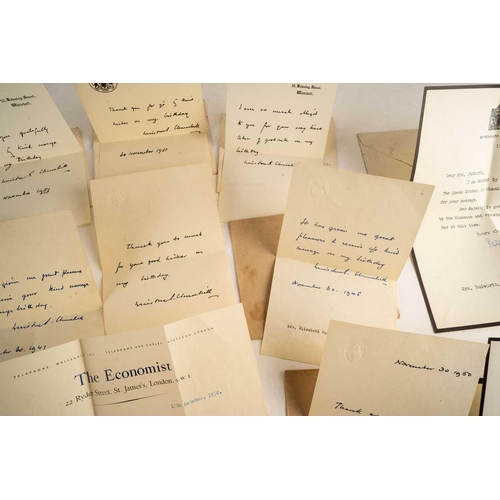 10, Downing Street,
Whitehall.
gratefully
kind message
Birthday
Winston S. Churchill
November 1953
Thank you for yr kind
wishes on my birthday
Winston S. Churchill
30 November 1951
10, Downing Street,
Whitehall.
I am so much obliged
to you for your very kind
token of goodwill on my
birthday.
Winston S. Churchill
Dear Mrs. Duckworth,
I am
The Queen
for your message.
Her Majesty is
by the kindness and
her at this time.
Yours
Mrs. Duckworth.
given me great pleasure
receive your kind message
my birthday.
Winston S. Churchill
Nov. 30, 1949
Thank you so much
for your good wishes on
my birthday.
Winston S. Churchill
It has given me great
pleasure to receive yr kind
message on my birthday
Winston S. Churchill
November 30, 1948
Mrs. Elizabeth
TELEPHONE WHITEHALL
TELEGRAMS AND CABLES
LONDON
The Economist
22 Ryder Street, St. James's, London, S.W.1
November 30 1950
Thank